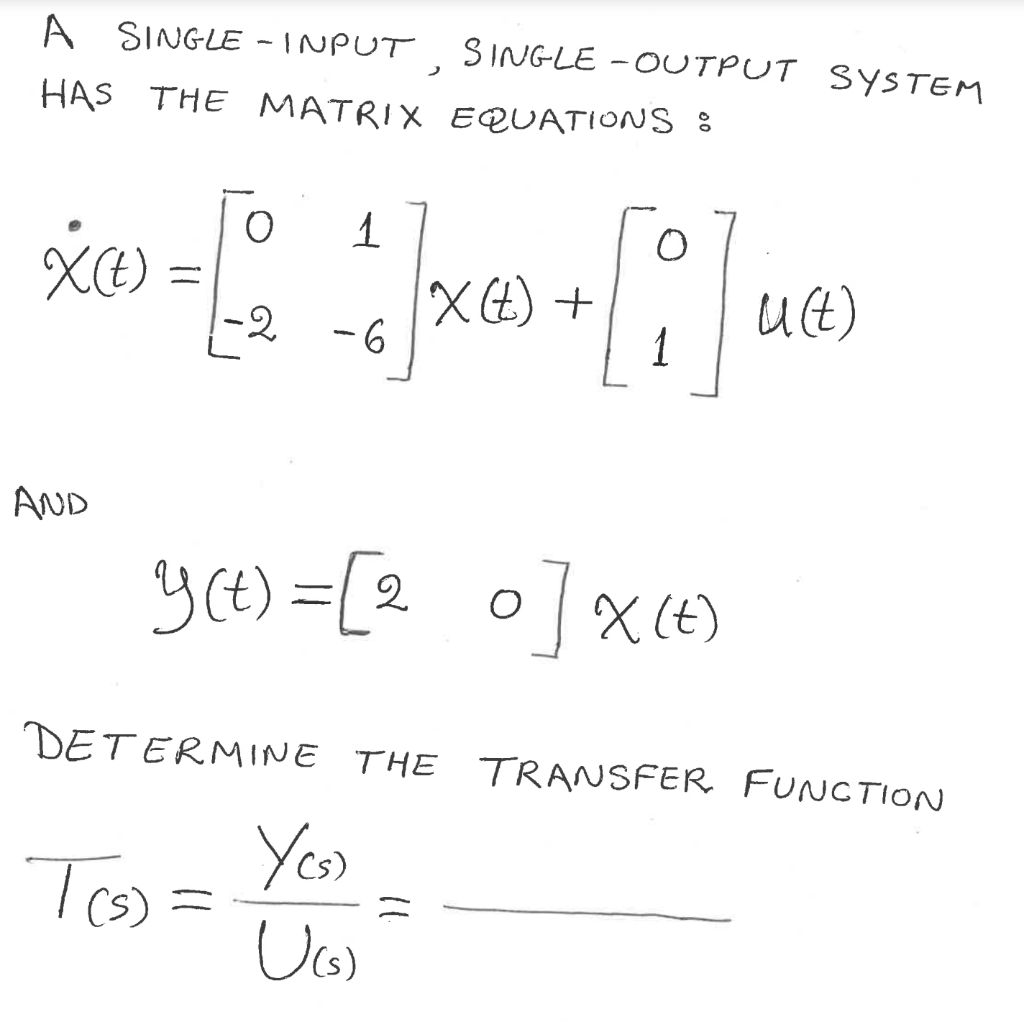 A SINGLE-INPUT, SINGLE-OUTPUT SYSTEM
HAS THE MATRIX EQUATIONS :
ẋ(t) = [0 1; -2 -6] x(t) + [0; 1] u(t)
AND
y(t) = [2 0] x(t)
DETERMINE THE TRANSFER FUNCTION
T(s) = Y(s)/U(s) = ______